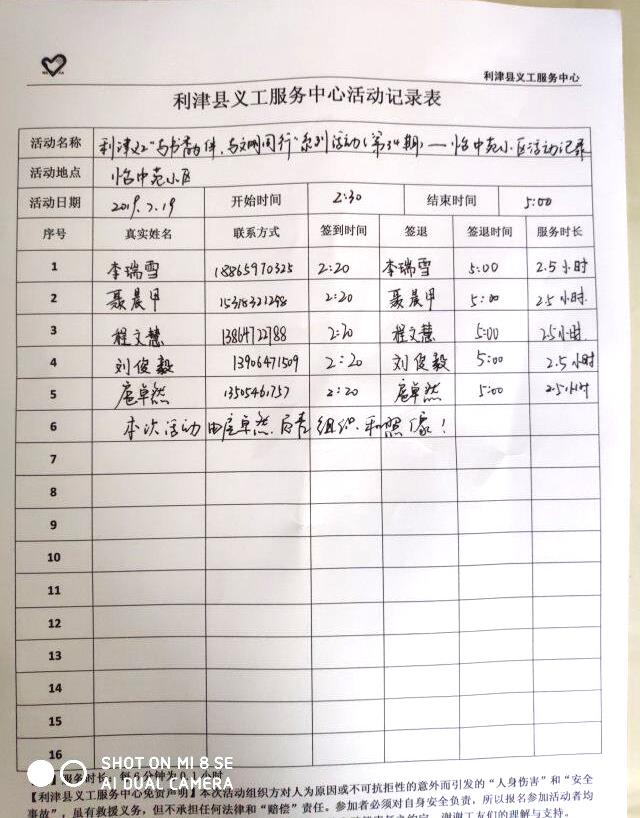 利津县义工服务中心
利津县义工服务中心活动记录表
活动名称 利津义工"与书香为伴,与文明同行"系列活动(第34期)—怡中苑小区活动记录
活动地点 怡中苑小区
活动日期 2019.7.19 开始时间 2:30 结束时间 5:00
序号 真实姓名 联系方式 签到时间 签退 签退时间 服务时长
1 李瑞雪 18865970325 2:20 李瑞雪 5:00 2.5小时
2 聂晨甲 15318321298 2:20 聂晨甲 5:00 2.5小时
3 程文慧 13864722788 2:20 程文慧 5:00 2.5小时
4 刘俊毅 13906471509 2:20 刘俊毅 5:00 2.5小时
5 扈卓然 13505461757 2:20 扈卓然 5:00 2.5小时
6 本次活动由扈卓然负责组织和照像!
7
8
9
10
11
12
13
14
15
16
服务时长:每6分钟为0.1小时
【利津县义工服务中心免责声明】本次活动组织方对人为原因或不可抗拒性的意外而引发的“人身伤害”和“安全
事故”,虽有救援义务,但不承担任何法律和“赔偿”责任。参加者必须对自身安全负责,所以报名参加活动者均
谢谢工友们的理解与支持。
SHOT ON MI 8 SE
AI DUAL CAMERA